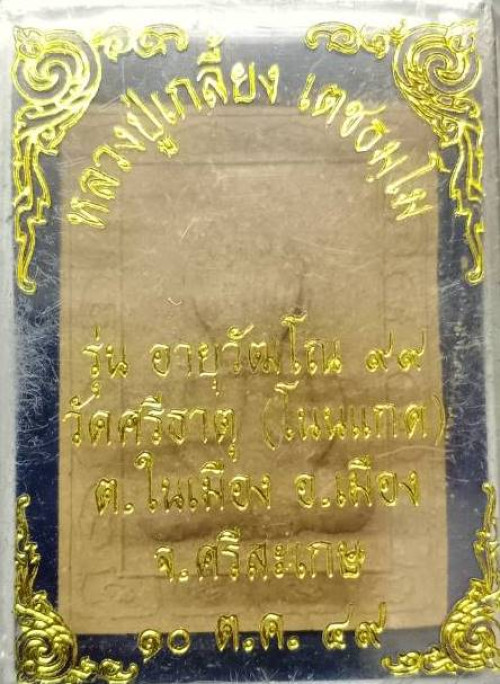 หลวงปู่เกลี้ยง เตชธมฺโม
รุ่น อายุวัฒโณ ๙๙
วัดศรีธาตุ (โนนแกด)
ต.ในเมือง อ.เมือง
จ.ศรีสะเกษ
๑๐ ต.ค. ๔๙